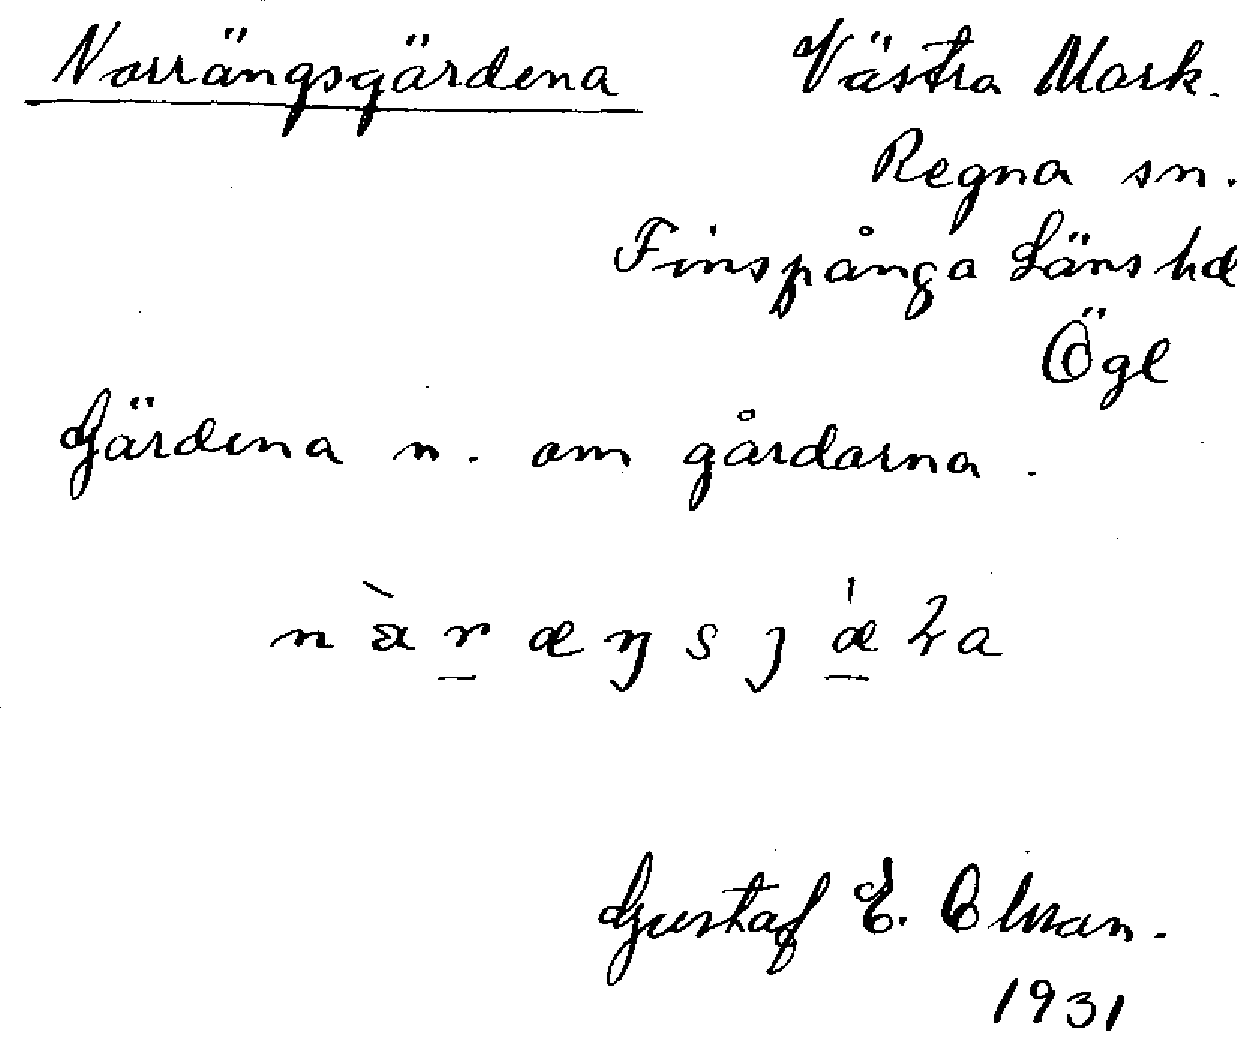 Norrängsgärdena Västra Mark.
Regna sn.
Finspånga Läns hd
Ögl
Gärdena n. om gårdarna.
Gustaf E.
1931